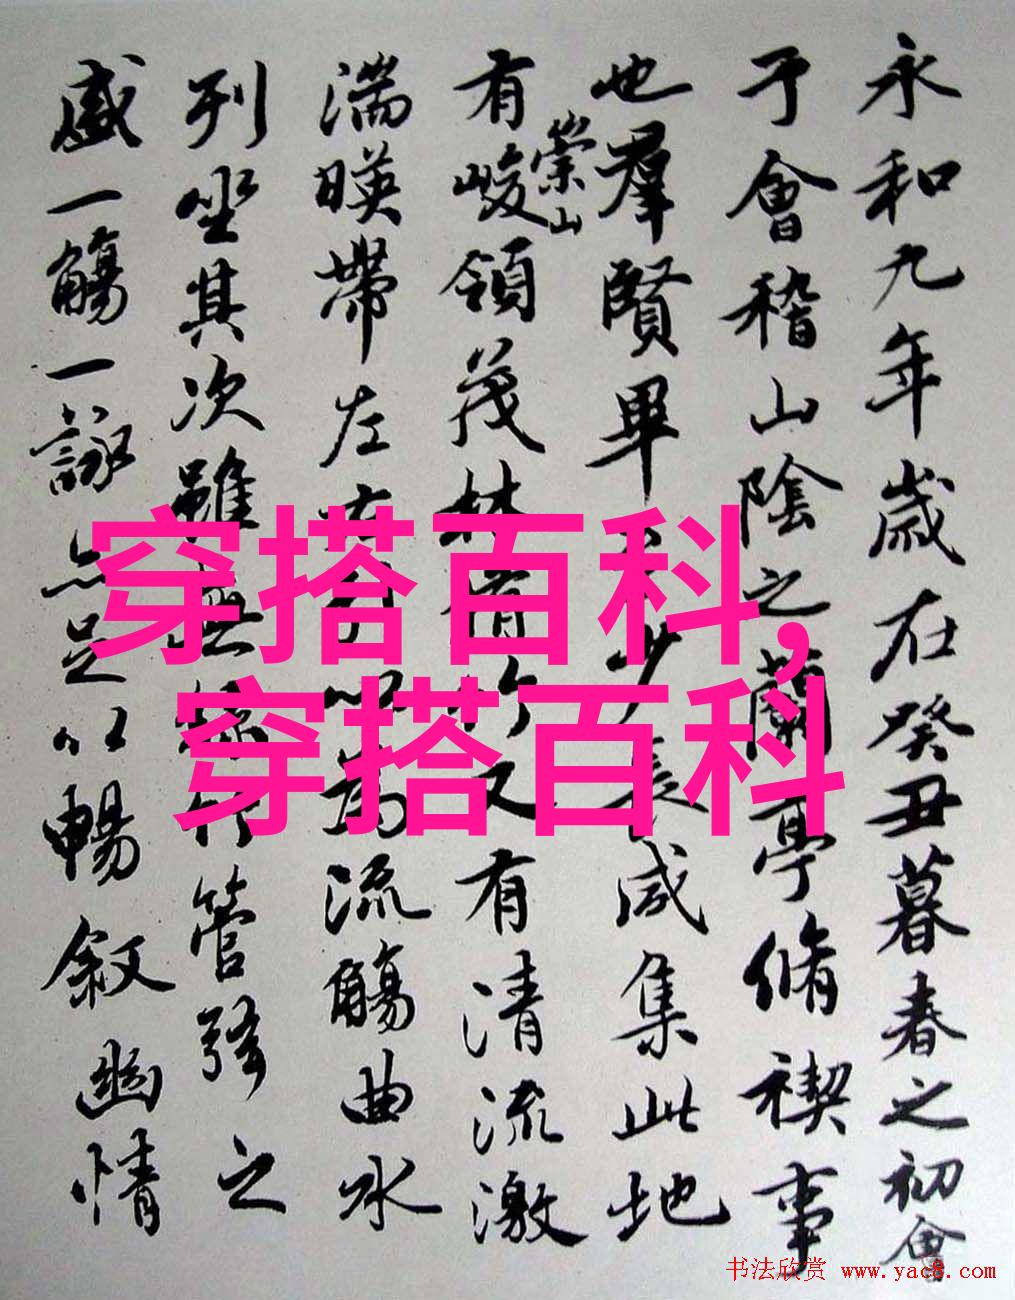 永和九年歲在癸丑暮春之初會
于會稽山陰之蘭亭脩禊事
也羣賢畢少長咸集此地
崇山
有峻領茂林脩竹又有清流激
湍暎帶左右引以為流觴曲水
列坐其次雖無絲竹管弦之
盛一觴一詠亦足以暢敘幽情
穿搭百科,
穿搭百科
书法欣赏 www.yac8.com